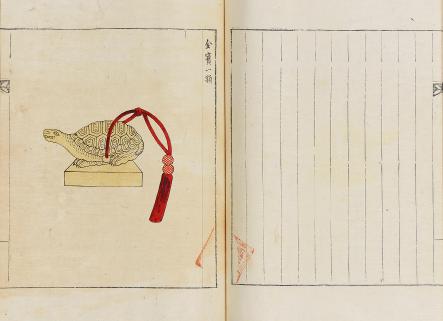 金寶一顆